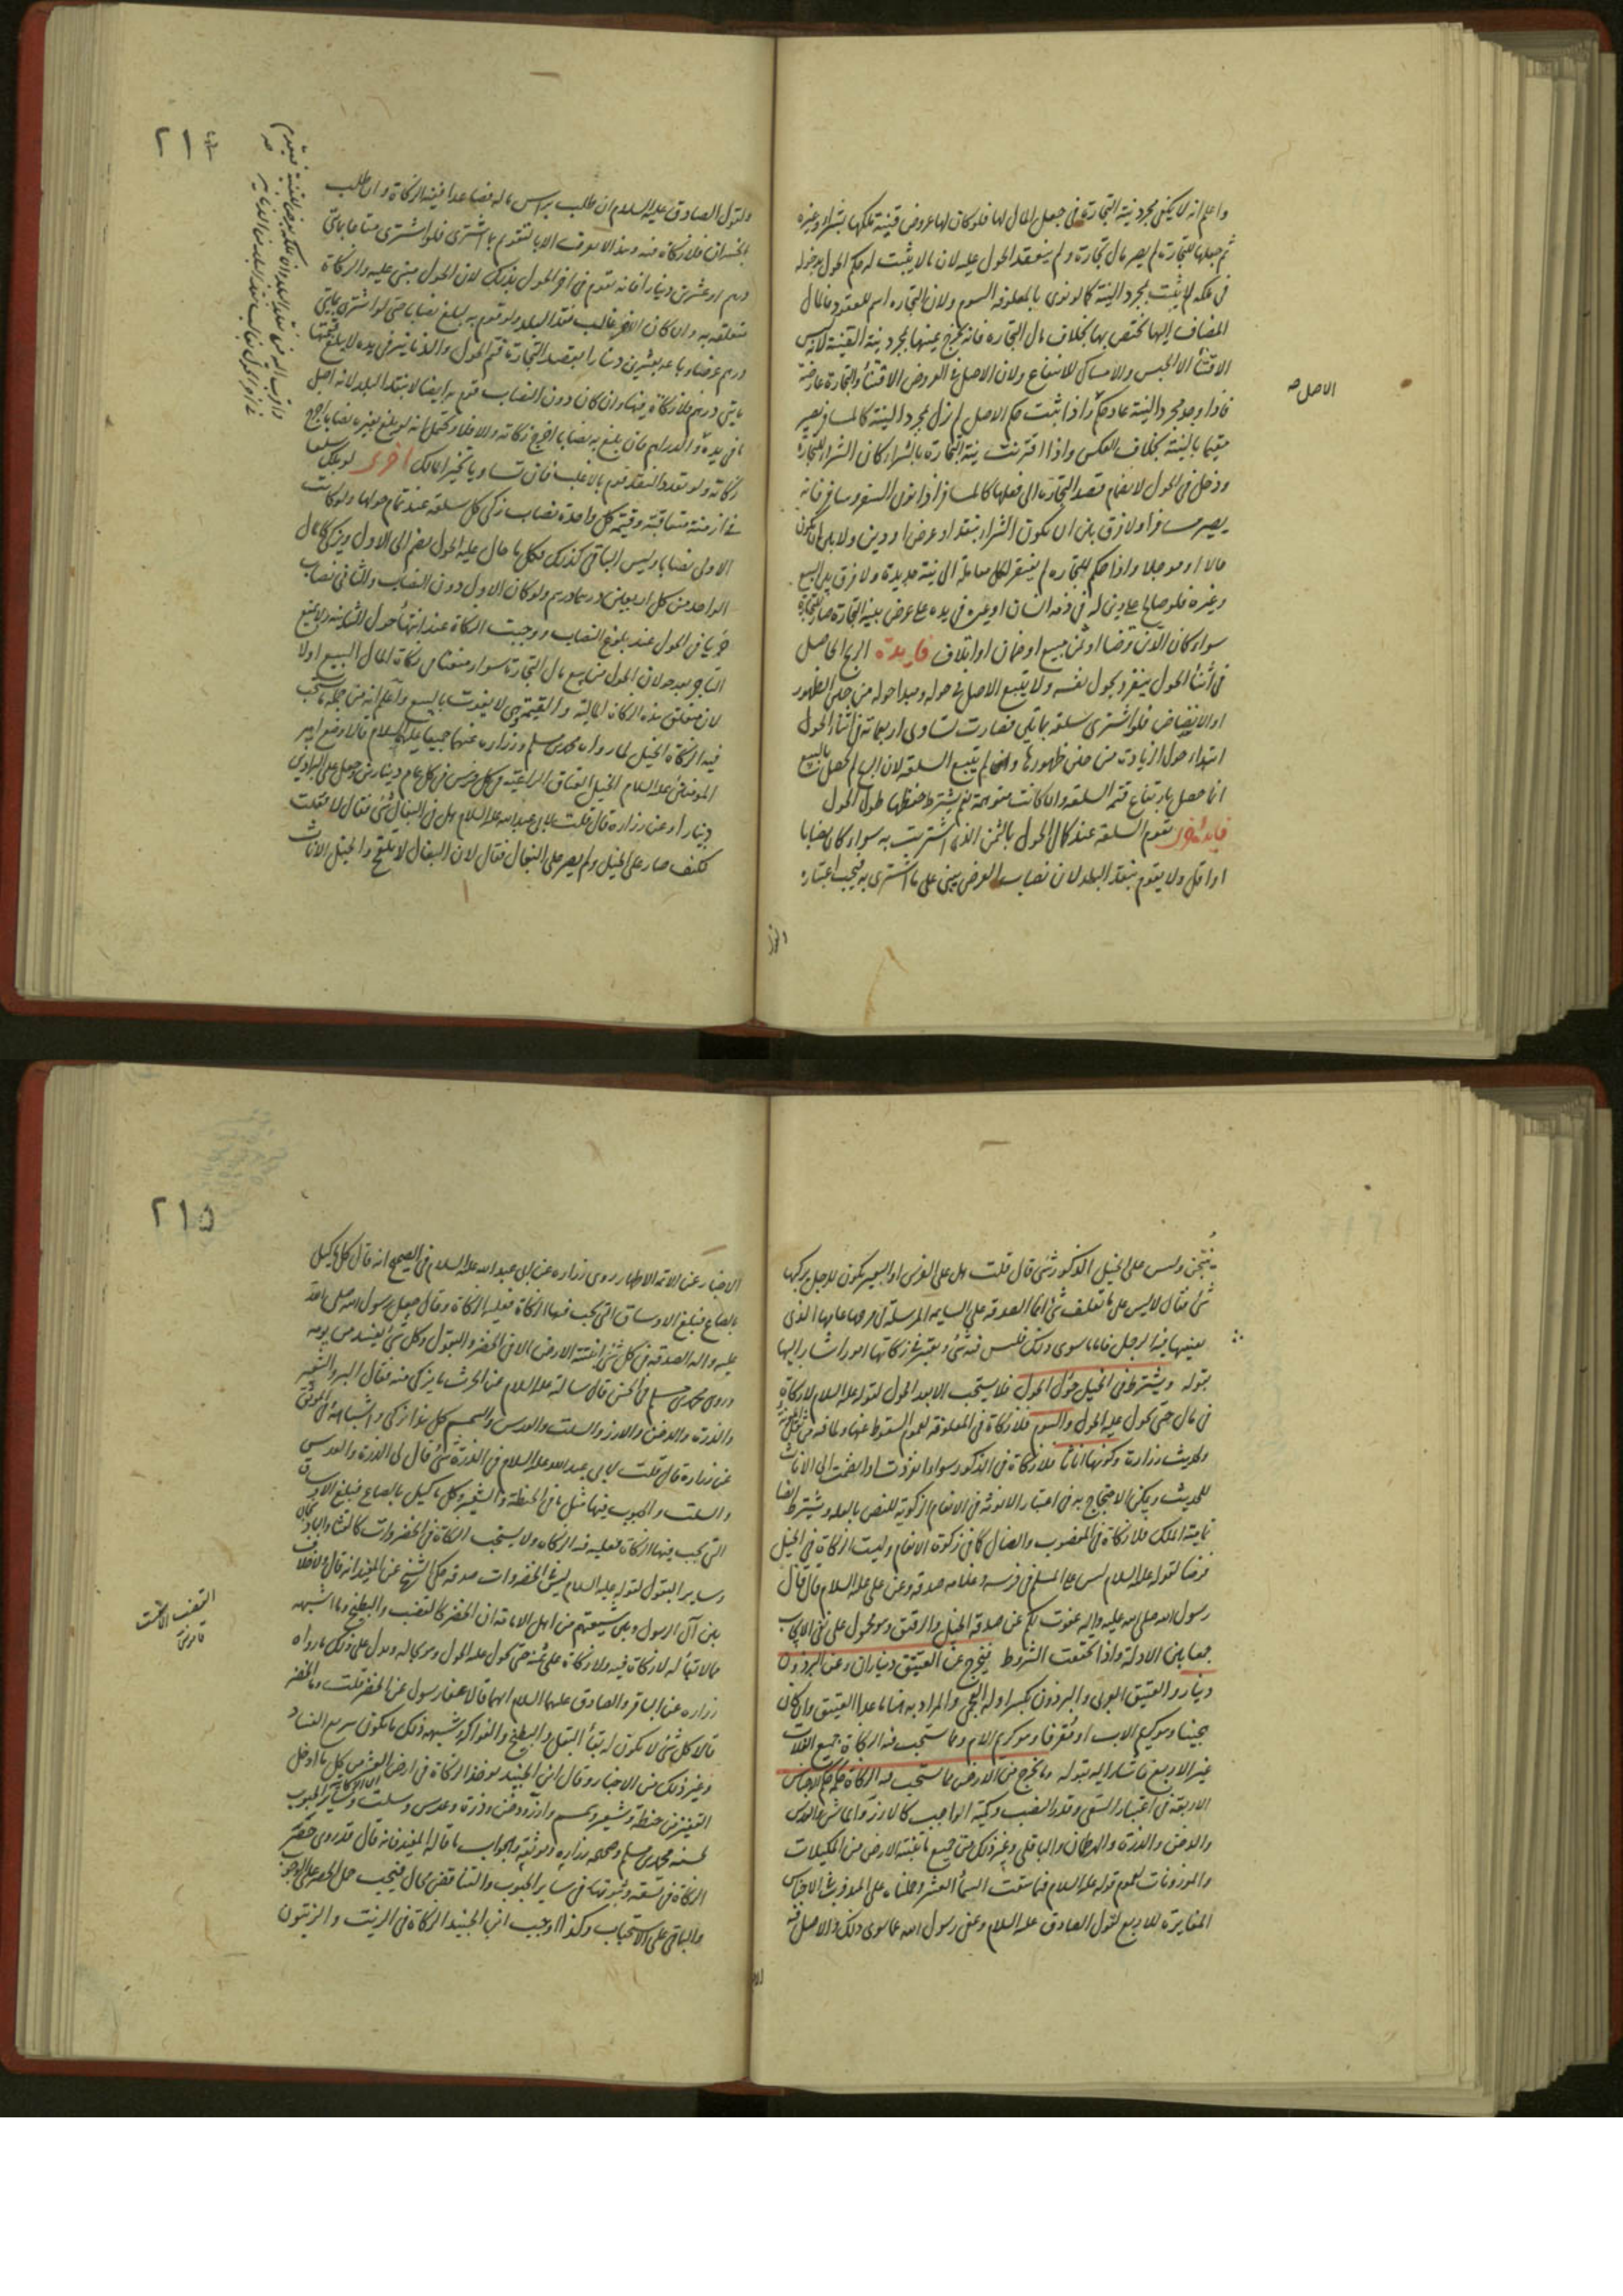 واعلم انه لا يكفى مجرد نية التجارة فى جعل المال لها فلو كان لها عروض قنية تملكها بشراء وغيره
ثم جعلها للتجارة لم يصر مال تجارة ولم ينعقد الحول عليه لان ما لا يثبت له حكم الحول بدخوله
فى ملكه لم يثبت بمجرد النية كما لو نوى بالمعلوفة السوم ولان التجاره اسم للعقود فالمال
المضاف اليها يختص بها بخلاف مال التجاره فانه يخرج عنها بمجرد نية القنية لانه ليس
الاقتناء الا الحبس والامساك للانتفاع ولان الاصل فى العروض الاقتناء والتجارة عارضة
الاصل صه
فاذا وجد مجرد النية عاد حكم اذا ثبت حكم الاصل لم يزل بمجرد النية كالمسافر يصير
مقيما بالنية بخلاف العكس واذا اقترنت نية التجارة بالشراء كان الشراء للتجارة
ودخل فى الحول لانضمام قصد التجارة الى فعلها كالمسافر اذا نوى السفر وسافر فانه
يصير مسافرا ولا فرق بين ان يكون الشراء بنقد او عرض او دين ولا بين ان يكون
حالا او موجلا واذا حكم للتجاره لم يفتقر لكل معاملة الى نية جديدة ولا فرق بين البيع
وغيره فلو صالح على دين له فى ذمة انسان او غيره فى يده على عوض بنية التجارة صار للتجارة
سواء كان الدين قرضا او ثمن مبيع او ضمان او اتلاف فايدة الربح الحاصل
فى أثناء الحول ينفرد بحول نفسه ولا يتبع الاصل فى حوله ومبدا حوله من حين الظهور
او الانضاض فلو اشترى سلعة بمايتى فصارت تساوى اربعماة فى اثناء الحول
ابتداء حول الزيادة من حين ظهورها وان لم يبع السلعة لان الربح لم يحصل بالبيع
انما حصل بارتفاع قيمة السلعة وان كانت متوهمة نعم يشترط حفظها طول الحول
فايدة اخرى تقوم السلعة عند كمال الحول بالثمن الذى اشتريت به سواء كان نصابا
او اقل ولا يقوم بنقد البلد لان نصاب العرض يبنى على ما اشترى به فيجب اعتباره
٢١٤
ولقول الصادق عليه السلام ان طلب براس ماله فصاعدا ففيه الزكاة وان طلب
بالخسران فلا زكاة فيه وهذا لا يعرف الا بالتقويم بما اشترى فلو اشترى متاعا بمايتى
درهم او عشرين دينارا فانه يقوم فى اخر الحول بذلك لان الحول مبنى عليه والزكاة
متعلقة به وان كان الاخر غالب نقد البلد ولو قوم به لبلغ نصابا حتى لو اشترى بمايتى
درهم عرضا وباعه بعشرين دينارا بقصد التجارة فتم الحول والدنانير فى يده لا يبلغ قيمتها
مايتى درهم فلا زكاة فيها وان كان دون النصاب قوم به ايضا لا بنقد البلد لانه اصل
زكاته ولو تعدد النقد قوم بالاغلب فان تساويا تخير المالك اخرى لو ملك سلعا
فى ازمنة متعاقبة وقيمة كل واحدة نصاب زكى كل سلعة عند تمام حولها ولو كانت
الاولى نصابا وليس الباقى كذلك فكلما حال عليه الحول يضم الى الاول ويزكى كالمال
الواحد من كل اربعين درهما درهم ولو كان الاول دون النصاب والثانى نصاب
جريا فى الحول عند بلوغ النصاب ووجبت الزكاة عند انتهاء حول الثانية ولا يمنع
التاجر بعد حولان الحول من بيع مال التجارة سواء ضمن زكاة المال المبيع اولا
لان متعلق هذه الزكاة المالية والقيمة وهى لا يفوت بالبيع واعلم انه من جملة ما يستحب
فيه الزكاة الخيل لما رواه محمد بن مسلم وزراره عنهما جميعا عليهما السلام قالا وضع امير
المومنين عليه السلام الخيل العتاق الراعية فى كل فرس فى كل عام دينارين وجعل على البراذين
دينارا وعن زراره قال قلت لابى عبد الله عليه السلام هل فى البغال شئ فقال لا فقلت
كيف صار على الخيل ولم يصر على البغال فقال لان البغال لا تلقح والخيل الاناث
ينتجن وليس على الخيل الذكور شئ قال قلت هل على الفرس او البعير يكون للرجل يركبها
شئ فقال لا ليس على ما تعلف شئ انما الصدقة على السايمة المرسلة فى مرجها عامها الذى
يقتنيها فيه الرجل فاما ما سوى ذلك فليس فيه شئ ويعتبر فى زكاتها امور اشار اليها
بقوله ويشترط فى الخيل حول الحول فلا يستحب الا بعد الحول لقوله عليه السلام لا زكاة
فى مال حتى يحول عليه الحول والسوم فلا زكاة فى المعلوفة لعموم السقوط عنها ولما فيه من
ولحديث زرارة وكونها اناثا فلا زكاة فى الذكور سواء انفردت او انضمت الى الاناث
للحديث ويمكن الاحتجاج به فى اعتبار الانوثة فى الانعام الزكوية للنص بالعله ويشترط ايضا
تمامية الملك فلا زكاة فى المغصوب والضال كما فى زكوة الانعام وليست الزكاة فى الخيل
فرضا لقوله عليه السلام ليس على المسلم فى فرسه وغلامه صدقة وعن على عليه السلام قال قال
رسول الله صلى الله عليه واله عفوت لكم عن صدقة الخيل والرقيق وهو محمول على نفى الايجاب
جمعا بين الادلة واذا اجتمعت الشروط يخرج عن العتيق ديناران وعن البرذون
دينار والعتيق العربى والبرذون بكسر اوله العجمى والمراد به هنا ما عدا العتيق وان كان
هجينا وهو كريم الاب او مقرفا وهو كريم الام ومما يستحب فيه الزكاة جميع الغلات
غير الاربع فاشار اليه بقوله وما يخرج من الارض مما يستحب فيه الزكاة حكمه حكم الاجناس
الاربعة فى اعتبار السقى وقدر النصب وكمية الواجب كالارز والماش والعدس
والدخن والذرة والهرطمان والباقلى وغير ذلك من جميع ما تنبته الارض من المكيلات
والموزونات لعموم قوله عليه السلام فيما سقت السماء العشر وحملناه على المندوب فى الاجناس
المغايرة للاربع لقول الصادق عليه السلام وعفى رسول الله عما سوى ذلك والاصل فيه
٢١٥
الاخبار عن الائمه الاطهار روى زراره عن ابى عبد الله عليه السلام فى الصحيح انه قال كل ما كيل
بالصاع فبلغ الاوساق التى تجب فيها الزكاة فعليه الزكاة وقال جعل رسول الله صلى الله
عليه واله الصدقة فى كل شئ انبتته الارض الا فى الخضر والبقول وكل شئ يفسد من يومه
وروى محمد بن مسلم فى الحسن قال سالته عليه السلام عن الحرث ما يزكى منه فقال البر والشعير
والذرة والدخن والارز والسلت والعدس والسمسم كل هذا يزكى واشباهه وفى الموثق
عن زرارة قال قلت لابى عبد الله عليه السلام فى الذرة شئ قال لى الذرة والعدس
والسلت والحبوب فيها مثل ما فى الحنطة والشعير وكل ما كيل بالصاع فبلغ الاوساق
التى يجب فيها الزكاة فعليه فيه الزكاه ولا يستحب الزكاة فى الخضروات كالقثاء والباذنجان
وساير البقول لقوله عليه السلام ليس فى الخضروات صدقة حكى الشيخ عن المفيد انه قال لا خلاف
بين آل الرسول وبين شيعتهم من اهل الامامة ان الخضر كالقضب والبطيخ وما اشبهه
القضب الاسپست
مما لا بقاء له لا زكاة فيه ولا زكاة على ثمنه حتى يحول عليه الحول وهو بحاله ويدل على ذلك ما رواه
زراره عن الباقر والصادق عليهما السلام انهما قالا عفى رسول عن الخضر قلت وما الخضر
قالا كل شئ لا يكون له بقاء البقل والبطيخ والفواكه وشبهه ذلك مما يكون سريع الفساد
وغير ذلك من الاخبار وقال ابن الجنيد يوخذ الزكاة فى ارض العشر من كل ما دخل
القفيز من حنطة وشعير وسمسم وارز ودخن وذرة وعدس وسلت وساير الحبوب
لحسنه محمد بن مسلم وصحيحه زراره وموثقه والجواب ما قاله المفيد فانه قال قد روى حصر
الزكاة فى تسعة وثبوتها فى ساير الحبوب والتناقض محال فيجب حمل الحصر على الوجوب
والباقى على الاستحباب وكذا اوجب ابن الجنيد الزكاة فى الزيت والزيتون